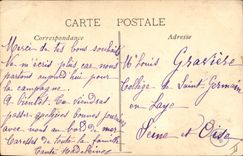 CARTE POSTALE
Correspondance
Merci de tes bons souhaits
Ne m'écris plus car nous
partons aujourd'hui pour
la campagne.
A bientôt. Tu viendras
passer quelques bonnes journées
avec nous au bord de mer
Caresses de toute la famille
Tante
M. Louis Gravière
Collège de Saint-Germain
en Laye
Seine et Oise